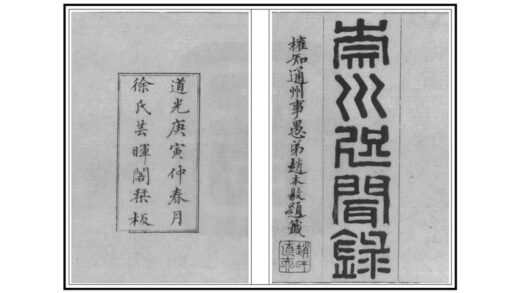 崇川咫聞錄
權知通州事愚弟趙本敭題籤
道光庚寅仲春月
徐氏芸暉閣栞板